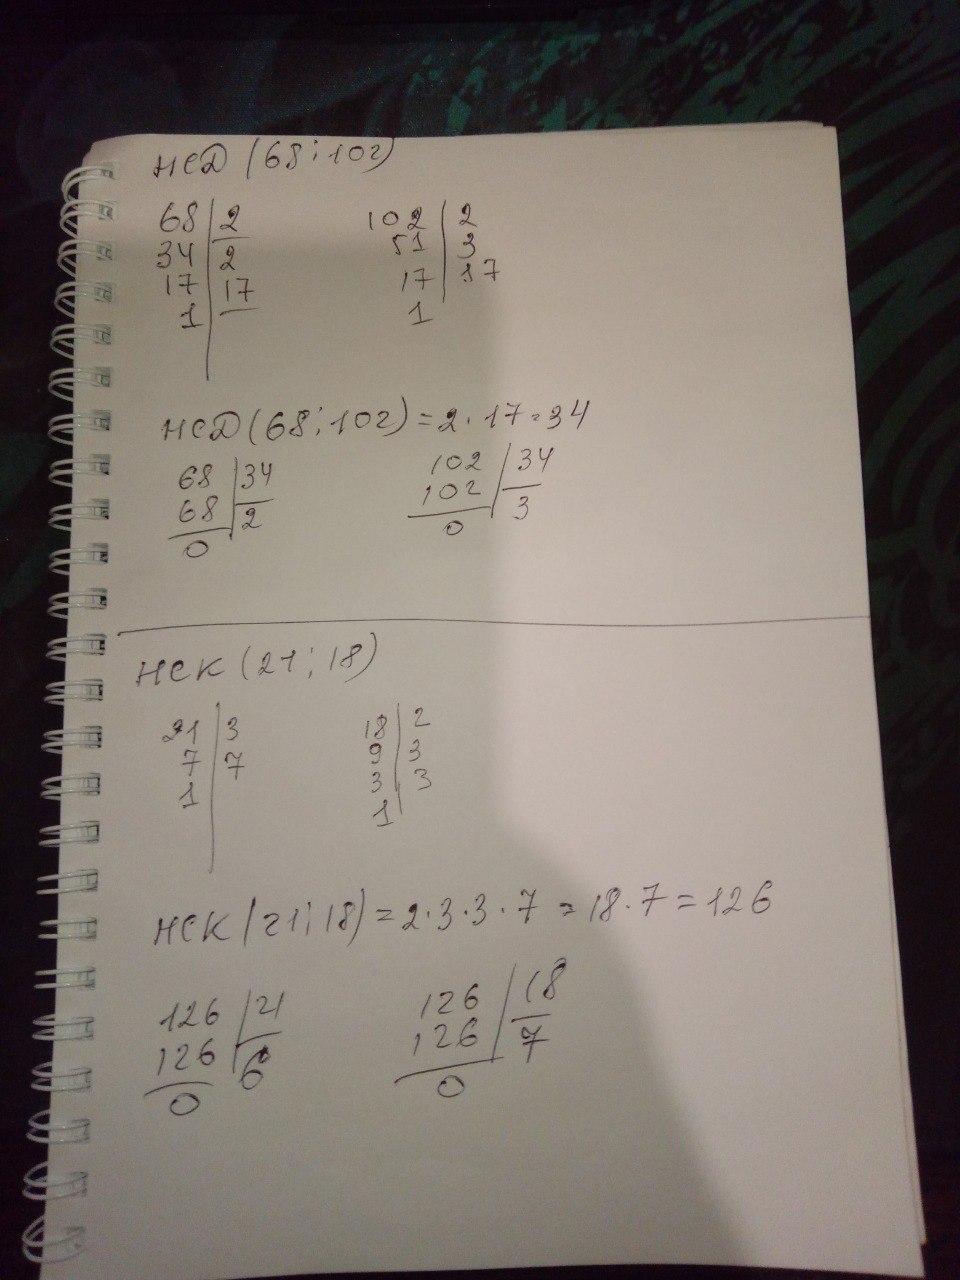 НСД (68; 102)
68 | 2 102 | 2
34 | 2 51 | 3
17 | 17 17 | 17
1 | 1
НСД (68; 102) = 2 · 17 = 34
68 | 34 102 | 34
68 | 2 102 | 3
0 0
НСК (21; 18)
21 | 3 18 | 2
7 | 7 9 | 3
1 | 3 | 3
1
НСК (21; 18) = 2 · 3 · 3 · 7 = 18 · 7 = 126
126 | 21 126 | 18
126 | 6 126 | 7
0 0